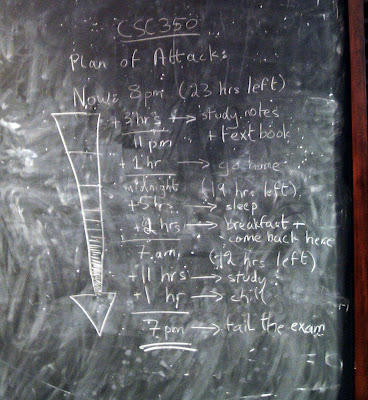 CSC350
Plan of Attack:
Now: 8pm (23 hrs left)
+3hrs → study notes
+ text book
11 pm
+1 hr → go home
midnight (19 hrs left)
+5hrs → sleep
+2 hrs → breakfast +
come back here
7 am (12 hrs left)
+11 hrs → study
+1 hr → chill
7pm → fail the exam